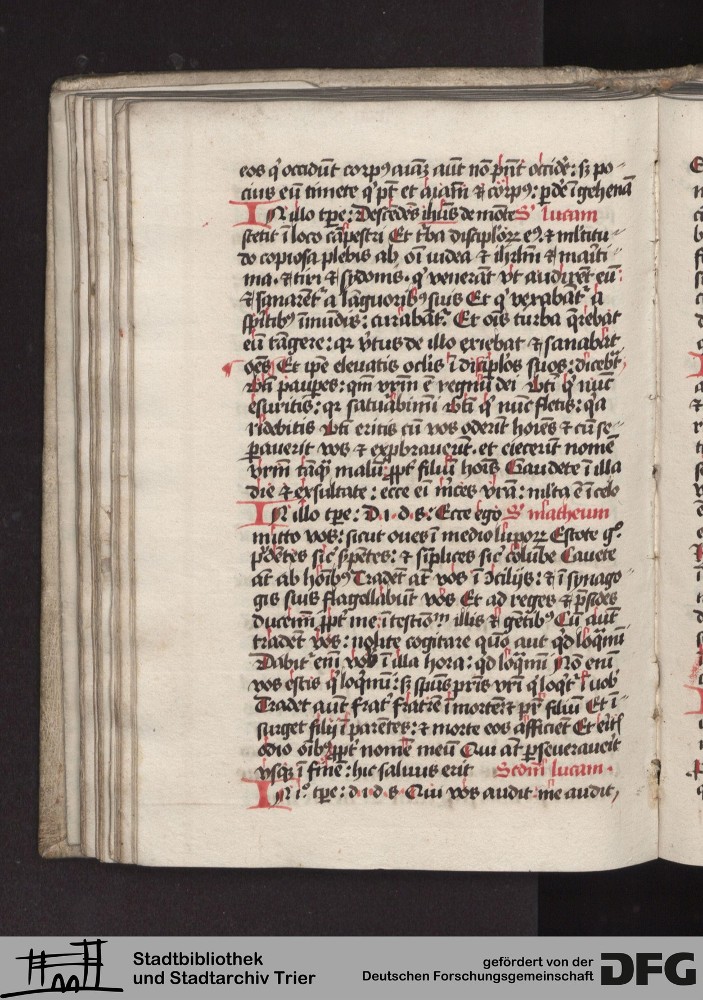 eos q̄ occidūt corpꝰ aīaꝫ aūt nō pn̄t occidē: sꝫ po-
cius eū timete q̄ pt̄ et aīam̄ ⁊ corpꝰ: ꝑdē ī gehenā
IN illo tp̄e: Descēdēs ih̄us de mōte S' lucam
stetit ī loco cāpestri Et t̄ba disciplōꝝ eꝰ ⁊ ml̄titu-
do copiosa plebis ab oī iudea ⁊ ih̄rlm̄ ⁊ mariti-
ma ⁊ tiri ⁊ sydonis q̄ venerāt vt audirēt eū:
⁊ sanarent᷑ a lāguoribꝰ suis Et q̄ vexabāt᷑ a
sp̄itibꝰ īmūdis: curabāt᷑ Et oīs turba q̄rebat
eū tāgere: qr v̄tus de illo exiebat ⁊ sanabat
oēs Et ip̄e eleuatis oclis ī discip̄los suos: dicebat
Bt̄i paup̄es: qm̄ vr̄m ē regnū dei Bt̄i q̄ nūc
esuritis: qr saturabimī Bt̄i q̄ nūc fletis: qa
ridebitis Bt̄i eritis cū vos oderīt hoīes ⁊ cū se-
ꝑauerīt vos ⁊ expbrauerūt et eiecerīt nomē
vr̄m tāqꝫ malū ꝓpt̄ filiū hoīs Gaudete ī illa
die ⁊ exsultate: ecce ei m̄ces vr̄a: ml̄ta ē ī celo
IN illo tp̄e: D. i. d. s: Ecce ego S' matheum
mitto vos: sicut oues ī medio luporꝝ Estote gº
p̄dētes sic' s̄pētes: ⁊ sīplices sic' colūbe Cauete
āt ab hoībꝰ Tradēt āt vos ī ꝯcilijs: ⁊ ī synago-
gis suis flagellabūt vos Et ad reges ⁊ p̄sides
ducemī ꝓpt̄ me: ī testioīm illis ⁊ gētibꝰ Cū aūt
tradēt vos: nolite cogitare quō aut qd loq̄mī
Dabit᷑ enī vob ī illa hora: qd loq̄mī Nō enī
vos estis q̄ loq̄mī: sꝫ spūs pr̄is vr̄i q̄ loqt᷑ ī uob
Tradet aūt frat᷑ fratrē ī mortē: ⁊ pr̄ filiū Et ī-
surget filij ī parētes: ⁊ morte eos afficiēt Et eritꝭ
odio oībꝰ ꝓpt̄ nomē meū Qui āt ꝑseuerauerit
vsqꝫ ī finē: hic saluus erit Scdm̄ lucam.
IN iº tp̄e: d. i. d. s Qui vos audit me audit,
Stadtbibliothek
und Stadtarchiv Trier
gefördert von der
Deutschen Forschungsgemeinschaft
DFG